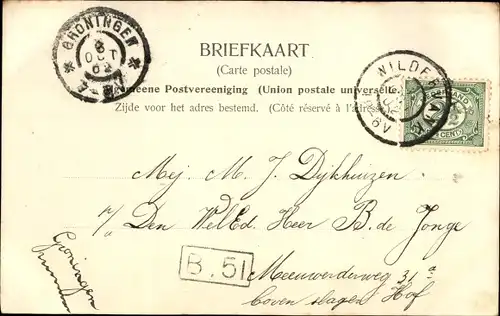 GRONINGEN
8
OCT
02
BRIEFKAART
(Carte postale)
Algemeene Postvereeniging (Union postale universelle)
Zijde voor het adres bestemd. (Côté réservé à l'adresse)
WILDERVANK
CENT
Mej. M. J. Dijkhuizen
p/a Den WelEd. Heer B. de Jonge
B. 51
Meeuwerderweg 31 a
boven slagen Hof
Groningen